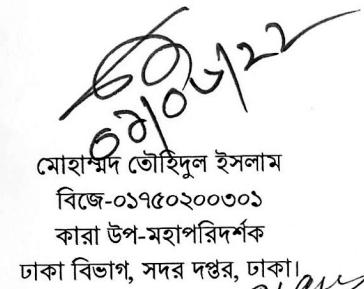 ০৯/০৬/২২
মোহাম্মদ তৌহিদুল ইসলাম
বিজে-০১৭৫০২০০৩০১
কারা উপ-মহাপরিদর্শক
ঢাকা বিভাগ, সদর দপ্তর, ঢাকা।